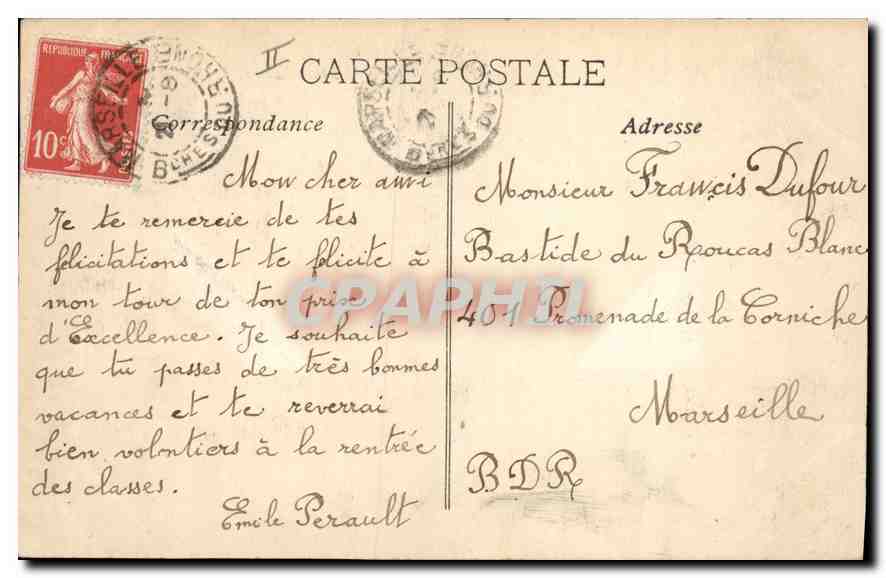 REPUBLIQUE FRANÇAISE
10c POSTES
II
CARTE POSTALE
Correspondance
Adresse
Mon cher ami
Je te remercie de tes
félicitations et te félicite à
mon tour de ton prix
d'Excellence. Je souhaite
que tu passes de très bonnes
vacances et te reverrai
bien volontiers à la rentrée
des classes.
Emile Perault
Monsieur Francis Dufour
Bastide du Roucas Blanc
401 Promenade de la Corniche
Marseille
BDR
CPAPHIL